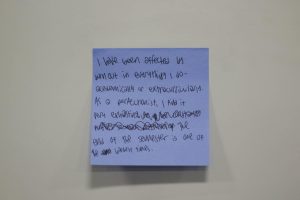 I have been affected by
burnout in everything I do -
academically or extracurriculars.
As a perfectionist, I find it
very exhausting
The
end of the semester is one of
the worst times.